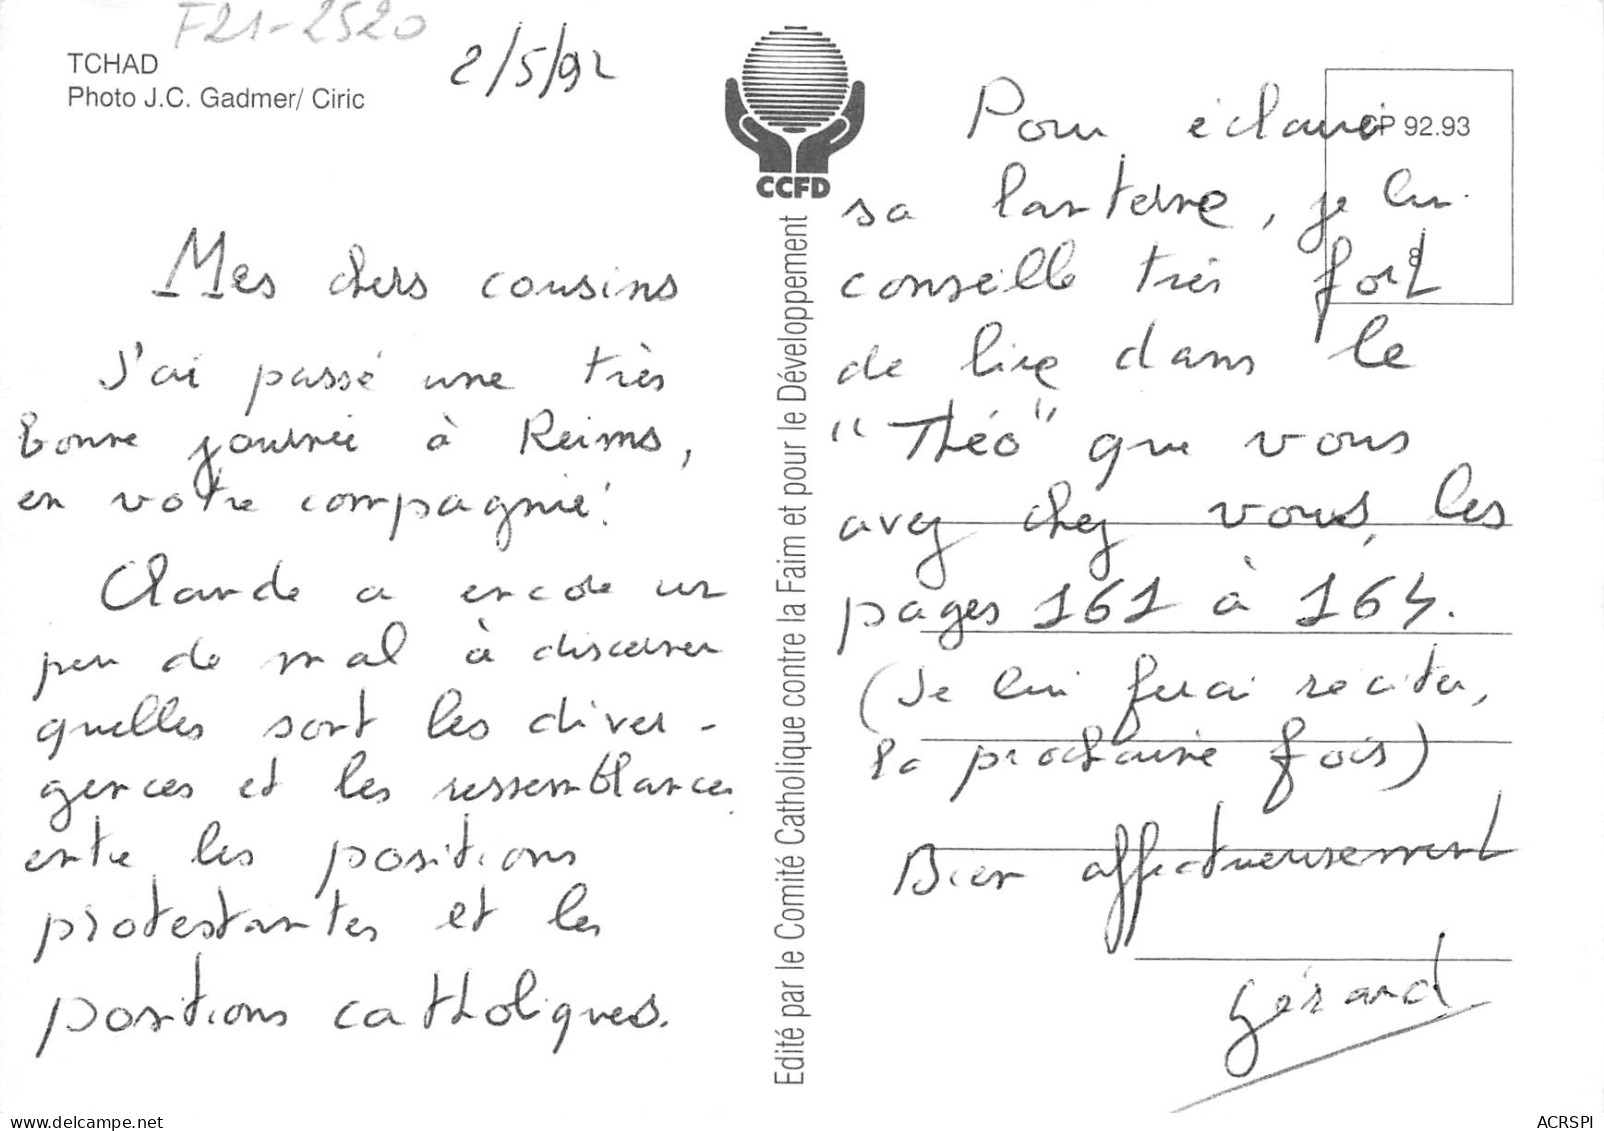 F21-2520
TCHAD
Photo J.C. Gadmer/ Ciric
2/5/92
Mes chers cousins
J'ai passé une très
bonne journée à Reims,
en votre compagnie!
Claude a encore un
peu de mal à discerner
quelles sont les diver-
gences et les ressemblances
entre les positions
protestantes et les
positions catholiques.
CCFD
Edité par le Comité Catholique contre la Faim et pour le Développement
CP 92.93
8
Pour éclairer
sa lanterne, je lui
conseille très fort
de lire dans le
"Théo" que vous
avez chez vous, les
pages 161 à 164.
(Je lui ferai réciter,
la prochaine fois)
Bien affectueusement
Gérard
delcampe.net
ACRSPI